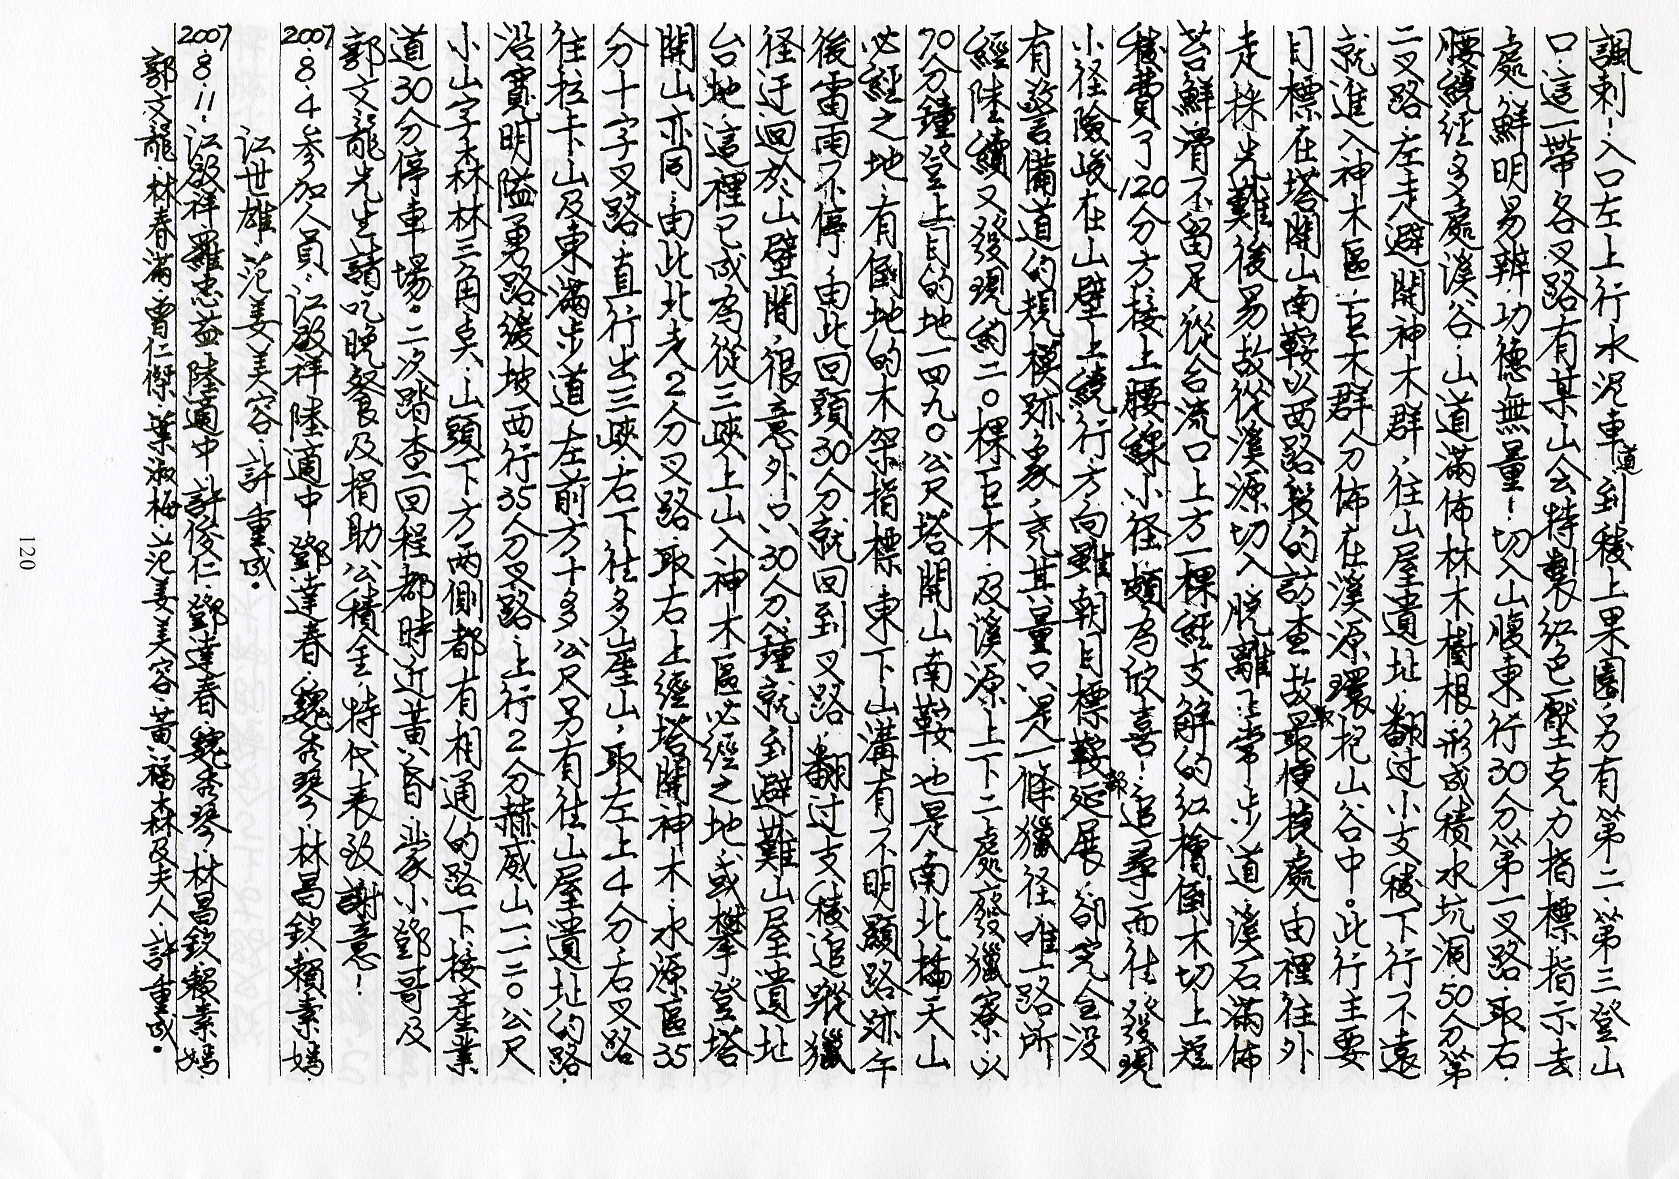 諷刺！入口左上行水泥車道到稜上果園，另有第二、第三登山
口，這一帶各叉路有某山会特製紅色壓克力指標指示去
處，鮮明易辨，功德無量！切入山腹東行30分第一叉路，取右，
腰繞經多處溪谷，山道滿佈林木樹根，形成積水坑洞，50分第
二叉路，左走避開神木群，往山屋遺址，翻过小支稜下行不遠
就進入神木區，巨木群分佈在溪源環抱山谷中。此行主要
目標在塔開山南鞍以西路段的訪查，故最便捷處由裡往外
走，採先難後易，故從溪源切入，脫離正常步道，溪石滿佈
苔鮮，滑不留足，從合流口上方一棵經支解的紅檜倒木切上，短
稜費了120分方接上腰繞小径，頗為欣喜！追尋而往，發現
小径險峻在山壁上繞行，方向雖朝目標鞍部延展，卻完全没
有警備道的規模跡象，充其量只是一條獵径，唯一路所
經陸續又發現約二○棵巨木，及溪源上下二處廢獵寮，以
70分鐘登上目的地一四九○公尺塔開山南鞍，也是南北插天山
必經之地，有倒地的木架指標，東下山溝有不明顯路跡，午
後雷雨不停，由此回頭30分就回到叉路，翻过支稜追蹤獵
径迂迴於山壁間，很意外，只30分鐘就到避難山屋遺址
台地，這裡已成為從三峽上山入神木區必經之地，或攀登塔
開山亦同，由此北走2分叉路，取右上續塔開神木，水源區35
分十字叉路，直行出三峽，右下往多崖山，取左上4分，右叉路
往拉卡山及東滿步道，左前方十多公尺另有往山屋遺址的路，
沿寬明隘勇路緩坡西行35分叉路，上行2分赫威山一一二○公尺
小山字森林三角点，山頭下方兩側都有相通的路下接產業
道30分停車場。二次踏查回程都時近黃昏，蒙小鄧哥及
郭文龍先生請吃晚餐及捐助公積金，特代表致謝意！
2007．8．4．参加人員：江啟祥 陸適中 鄧達春，魏秀琴 林昌欽 賴素嬌，
江世雄 范姜美容，許重成。
2007．8．11．江啟祥 羅忠益 陸適中 許俊仁，鄧達春，魏秀琴 林昌欽 賴素嬌，
郭文龍，林春滿 曾仁傑 葉淑梅，范姜美容，黃福森及夫人，許重成。
120